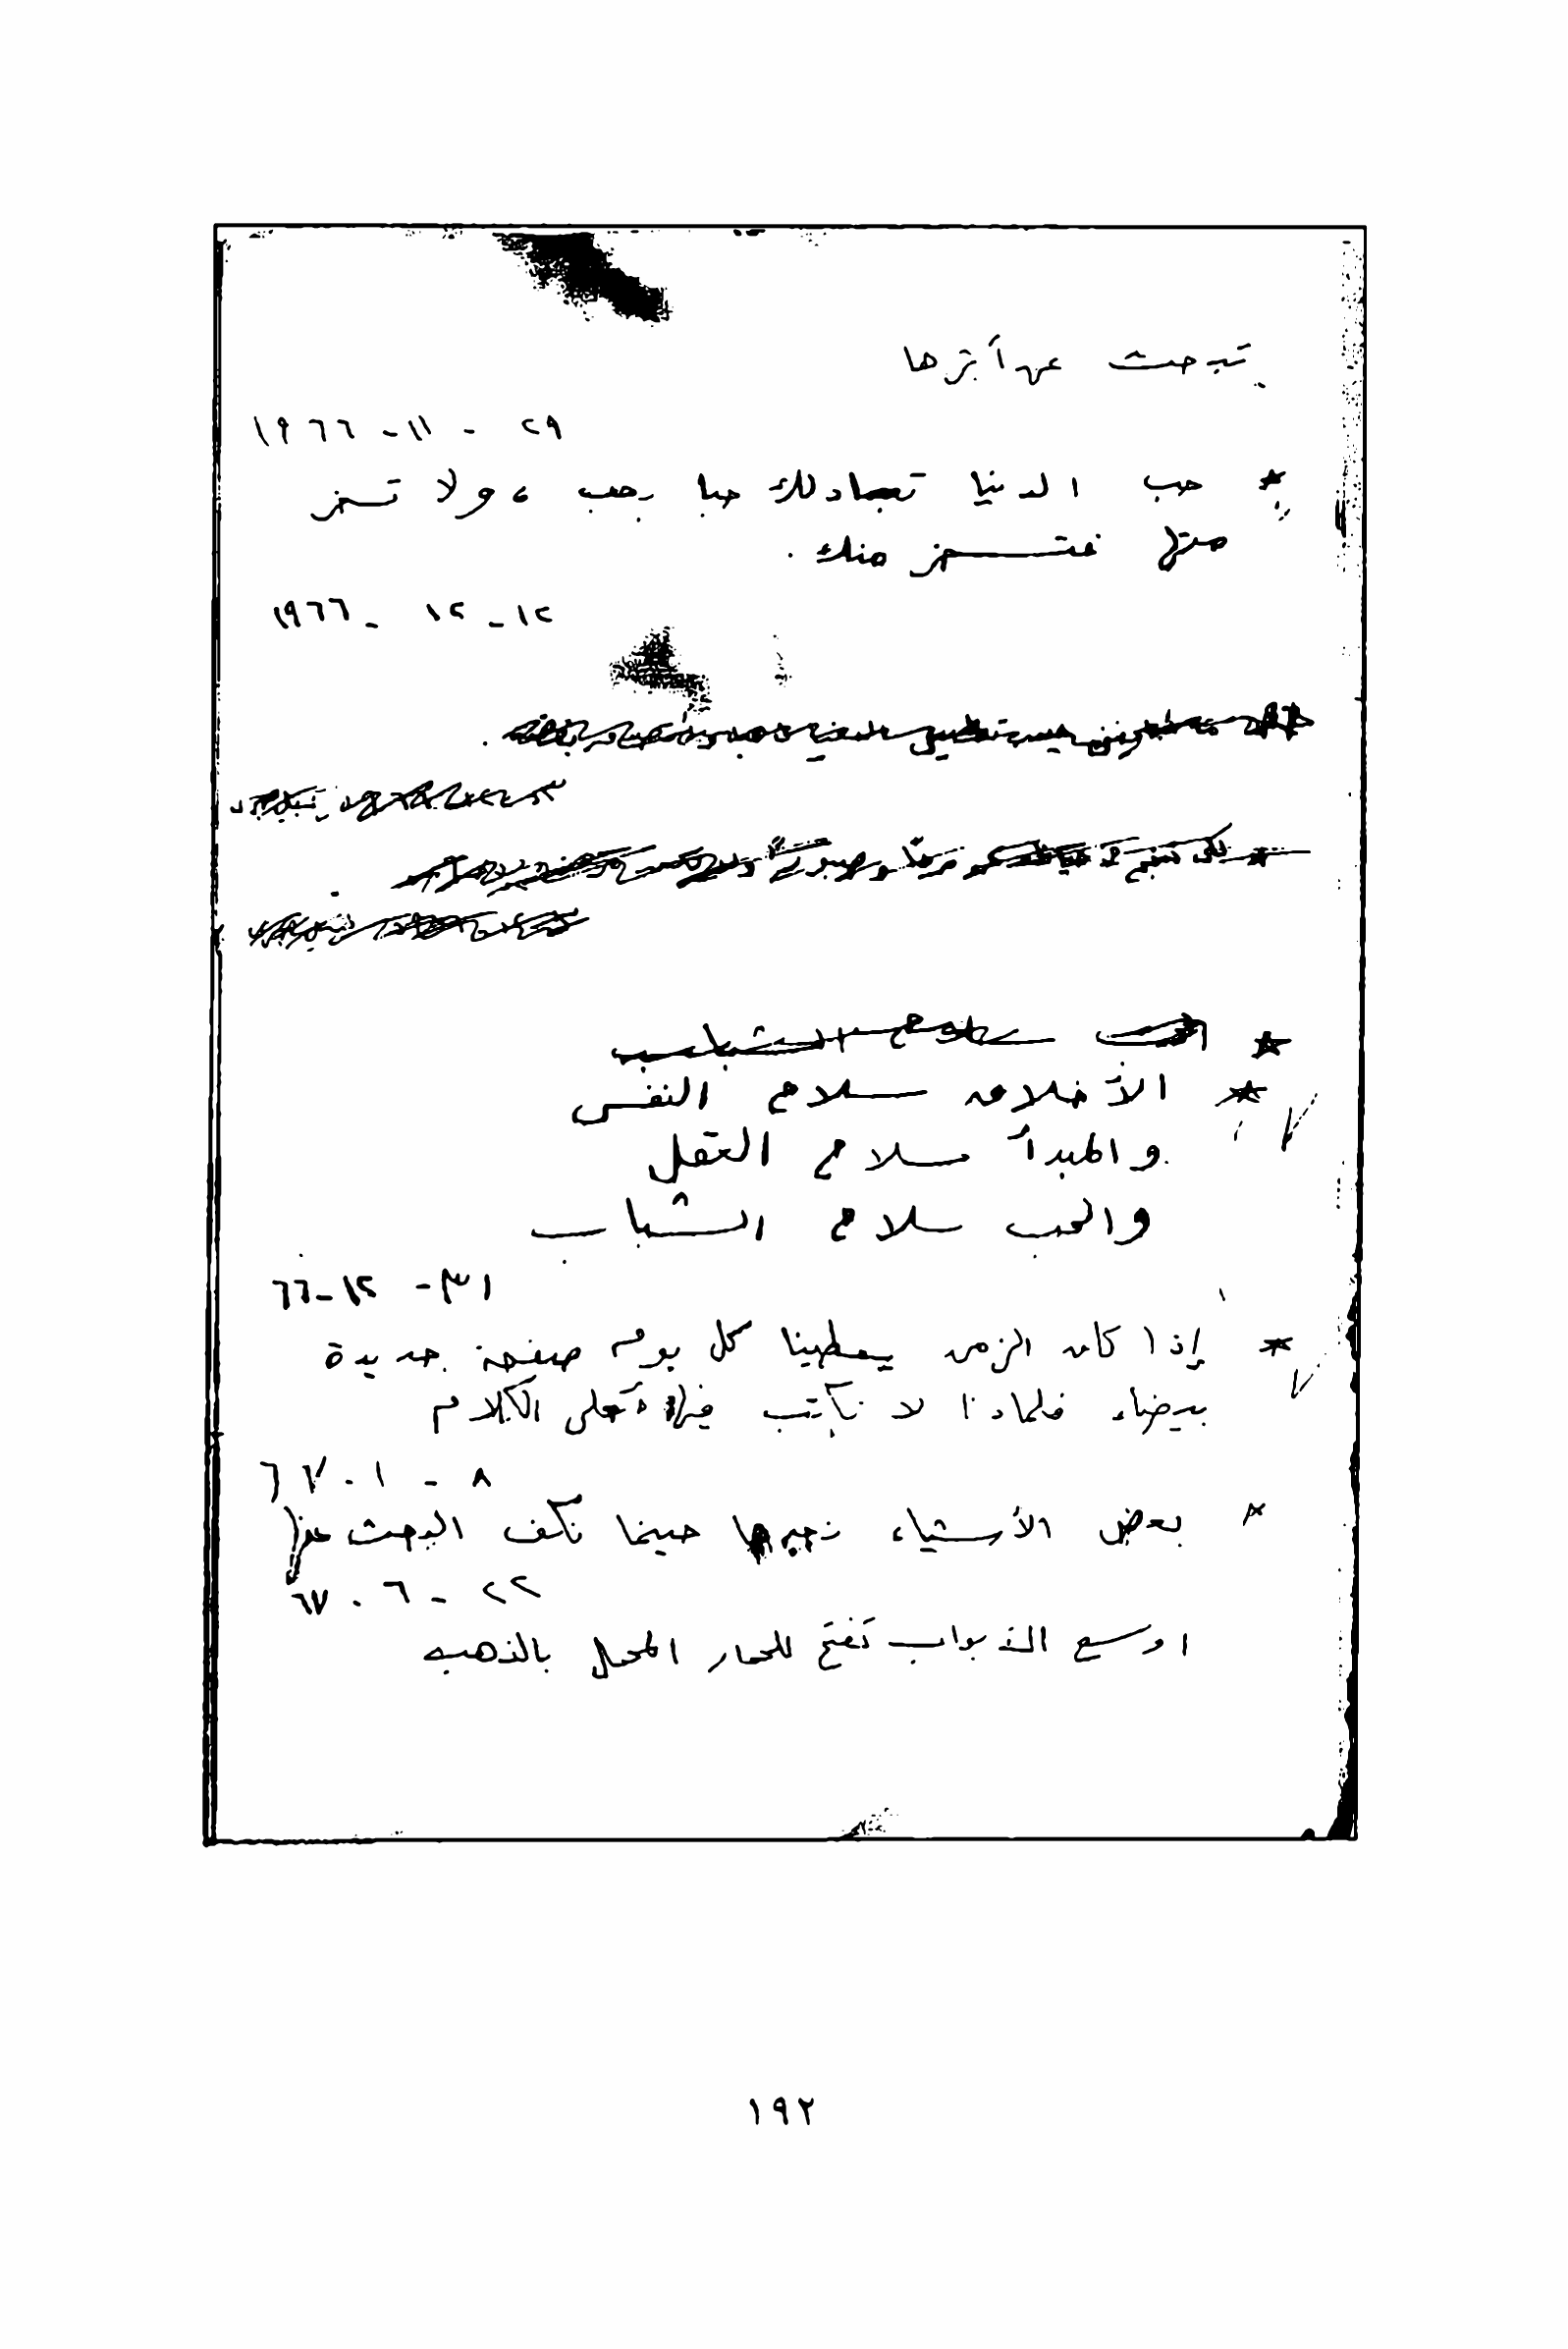 تبحث عن أثرها
٢٩ - ١١ - ١٩٦٦
* حب الدنيا تبادلك حبا بحب ، ولا تسخر
منها فتسخر منك .
١٢ - ١٢ - ١٩٦٦
* الحب سلاح الشباب
* الأخلاق سلاح النفس
والمبدأ سلاح العقل
والحب سلاح الشباب
٣١ - ١٢ - ٦٦
* إذا كان الزمن يعطينا كل يوم صفحة جديدة
بيضاء فلماذا لا نكتب فيها أحلى الكلام
٨ - ١ - ٦٧
* بعض الأشياء نجدها حينما نكف البحث عنها
٢٢ - ٦ - ٦٧
اوسع الأبواب تفتح للحمار المحمل بالذهب
١٩٢